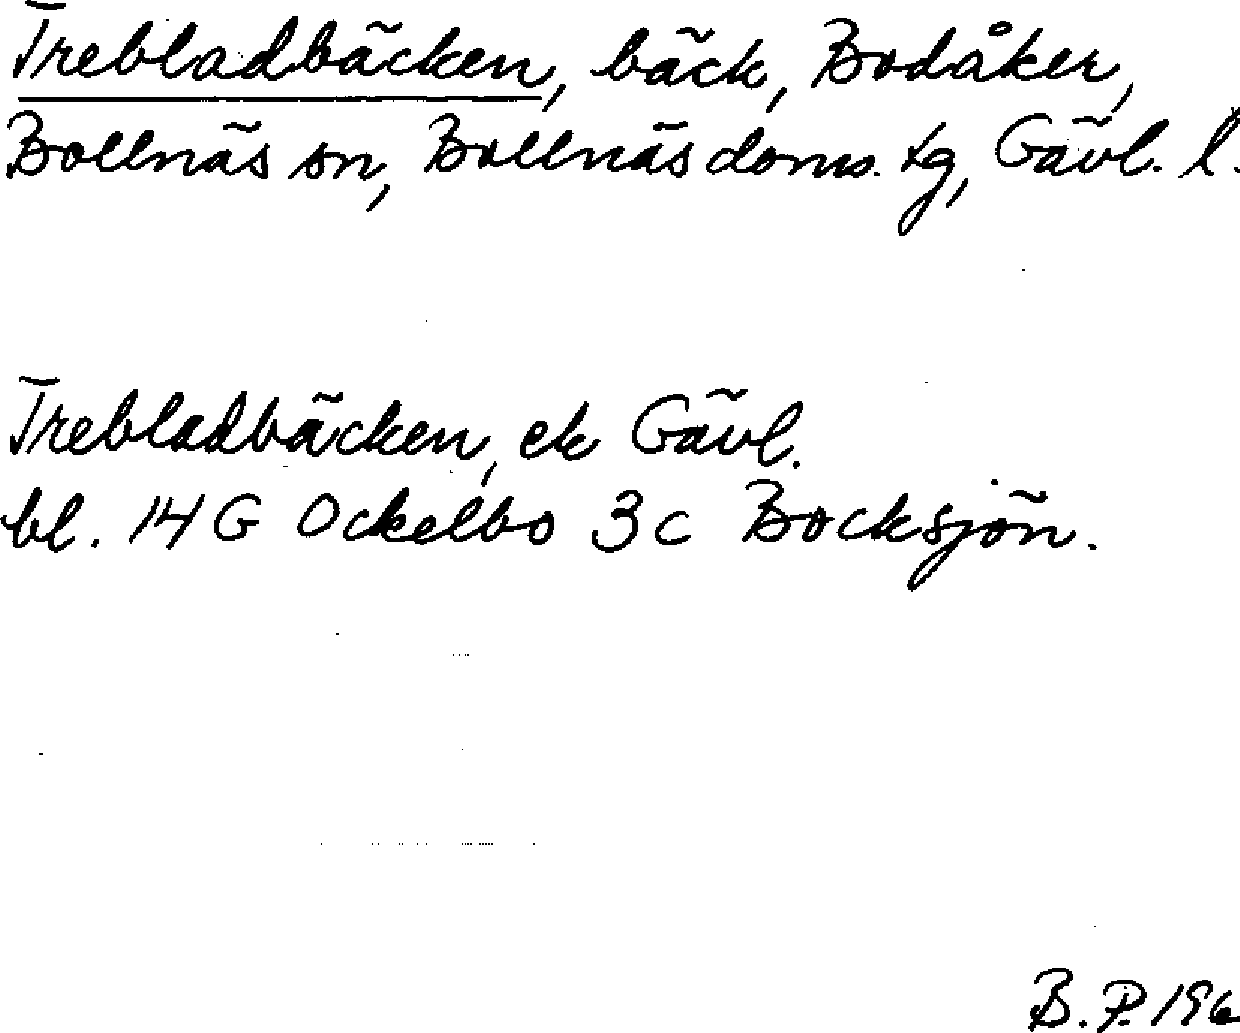 Trebladbäcken, bäck, Bodåker,
Bollnäs sn, Bollnäs doms. tg, Gävl. l.
Trebladbäcken, ek Gävl.
bl. 14 G Ockelbo 3c Bocksjön.
B. P. 196